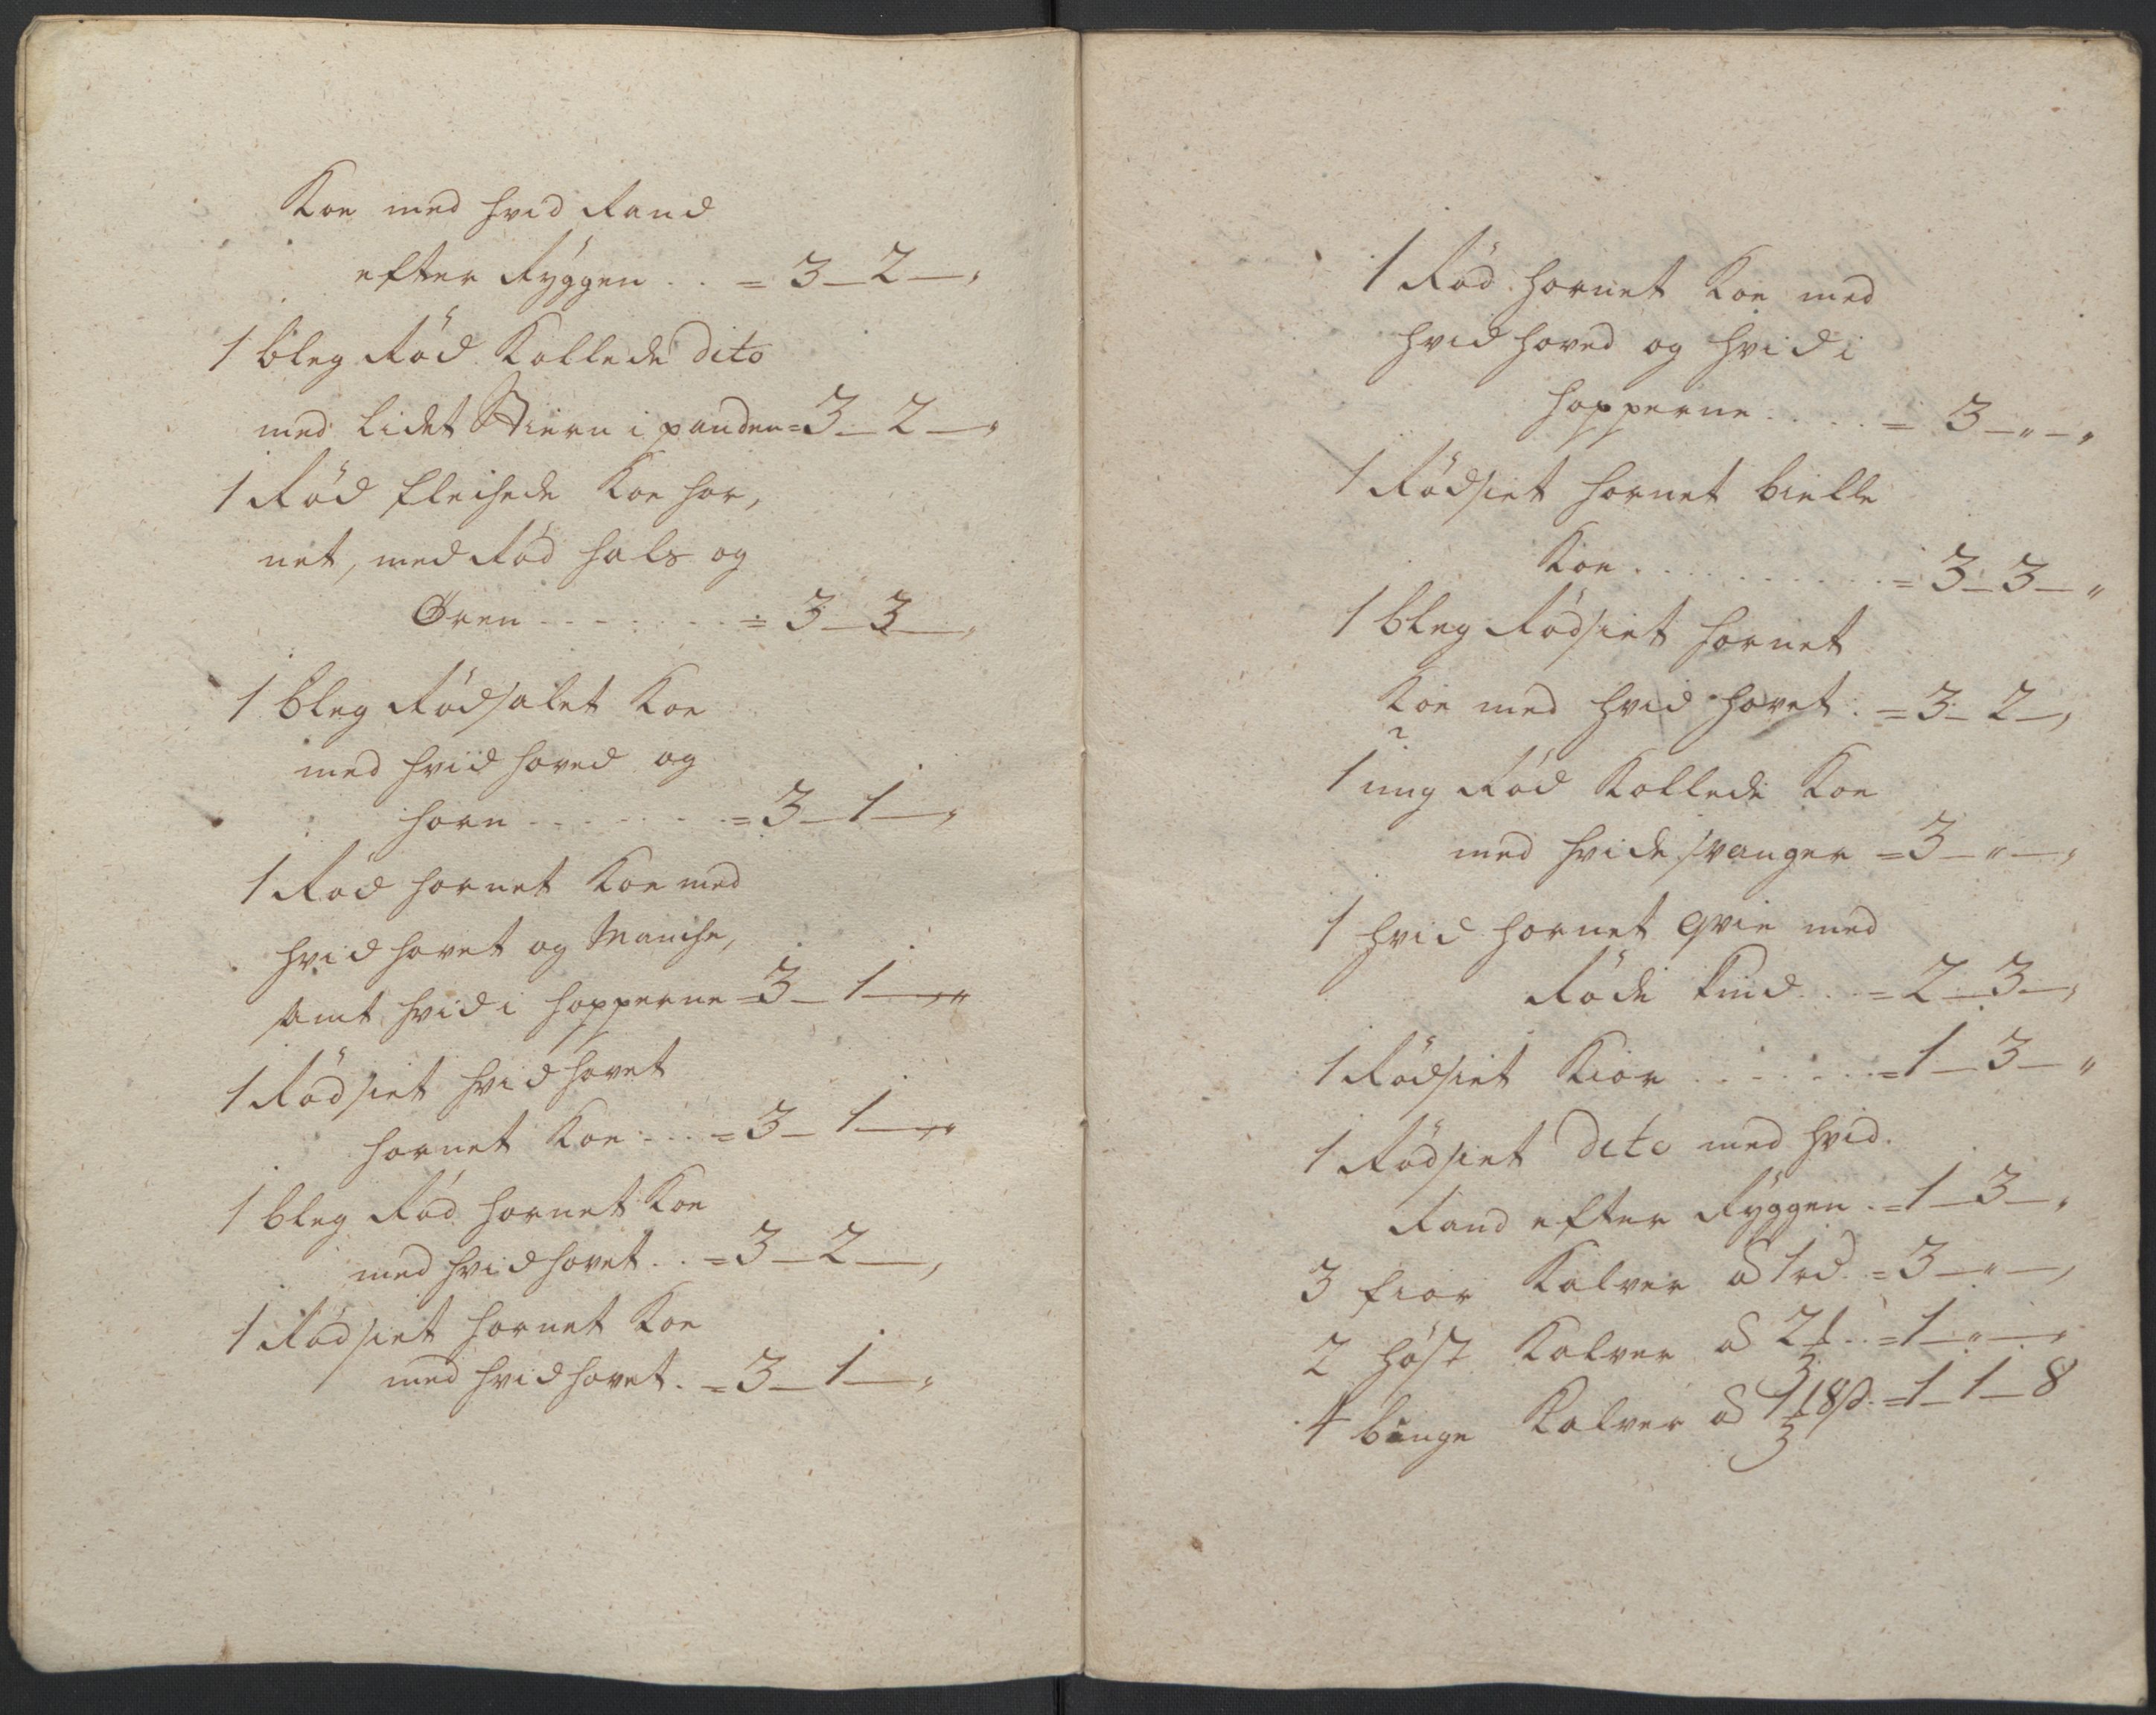 Koe med hvid Rand
efter Ryggen . . = 3 – 2 – „
1 bleg Rød Kollede dito
med lidet Stiern i panden = 3 – 2 – „
1 Rød fleihede Koe hor,
net, med Rød hals og
Øren - - - - - = 3 – 3 – „
1 bleg Rødsalet Koe
med hvid hoved og
horn - - - - - = 3 – 1 – „
1 Rød hornet Koe med
hvid hovet og Manihe,
samt hvid i hopperne = 3 – 1 – „
1 Rødsiet hvid hovet
hornet Koe . . . = 3 – 1 – „
1 bleg Rød hornet Koe
med hvid hovet . . = 3 – 2 – „
1 Rødsiet hornet Koe
med hvid hovet . = 3 – 1 – „
1 Rød hornet Koe med
hvid hoved og hvid i
hopperne . . . . = 3 – „ – „
1 Rødsiet hornet bielle
Koe . . . . . . . = 3 – 3 – „
1 bleg Rødsiet hornet
Koe med hvid hovet . = 3 – 2 – „
1 ung Rød Kollede Koe
med hvide svanger = 3 – „ – „
1 hvid hornet qvie med
Røde kind . . = 2 – 3 – „
1 Rødsiet Kior . . . . . = 1 – 3 – „
1 Rødsiet dito med hvid
Rand efter Ryggen . = 1 – 3 – „
3 fior Kalver a 1 rd. = 3 – „ – „
2 høst Kalver a 2 ʒ . . = 1 – „ – „
4 binge Kalver a 1 ʒ 8 ß. = 1 – 1 – 8